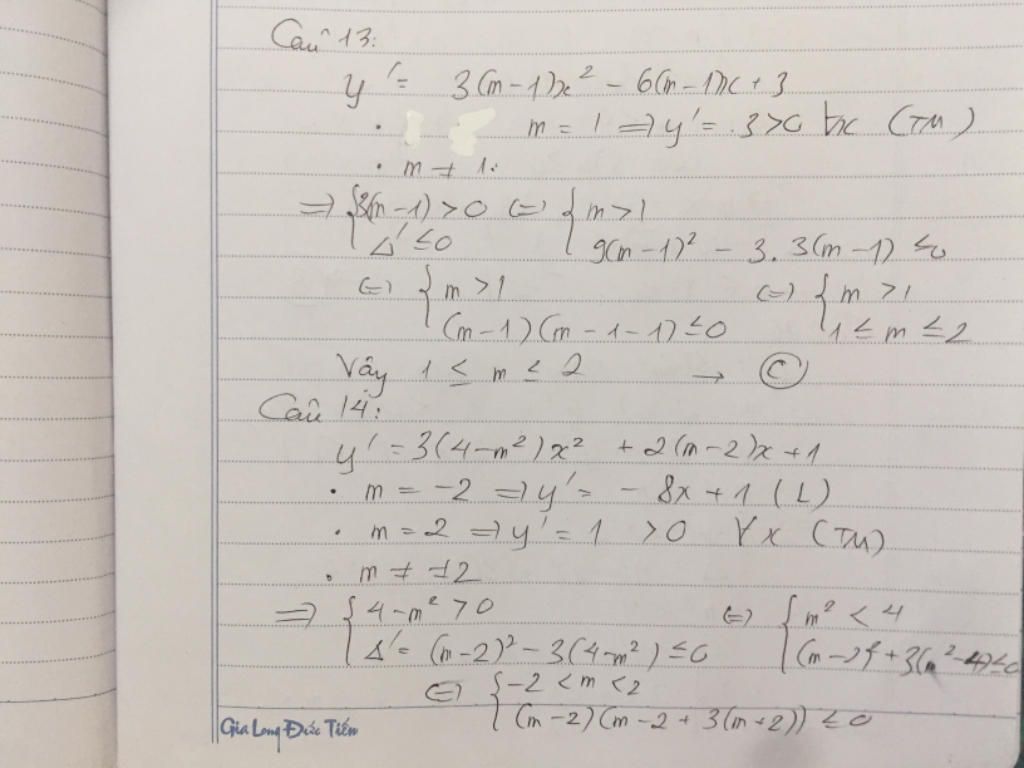 Câu 13:
y' = 3(m-1)x² - 6(m-1)x + 3
• m = 1 => y' = 3 > 0 ∀x (TM)
• m ≠ 1:
=> { 3(m-1) > 0 (=) { m > 1
Δ' ≤ 0 9(m-1)² - 3.3(m-1) ≤ 0
(=) { m > 1 (=) { m > 1
(m-1)(m-1-1) ≤ 0 1 ≤ m ≤ 2
Vây 1 ≤ m ≤ 2 → Ⓒ
Câu 14:
y' = 3(4-m²)x² + 2(m-2)x + 1
• m = -2 => y' = -8x + 1 (L)
• m = 2 => y' = 1 > 0 ∀x (TM)
• m ≠ ±2
=> { 4-m² > 0 (=) { m² < 4
Δ' = (m-2)² - 3(4-m²) ≤ 0 (m-2)² + 3(m²-4) ≤ 0
(=) { -2 < m < 2
(m-2)(m-2+3(m+2)) ≤ 0
Gia Long Đức Tiến